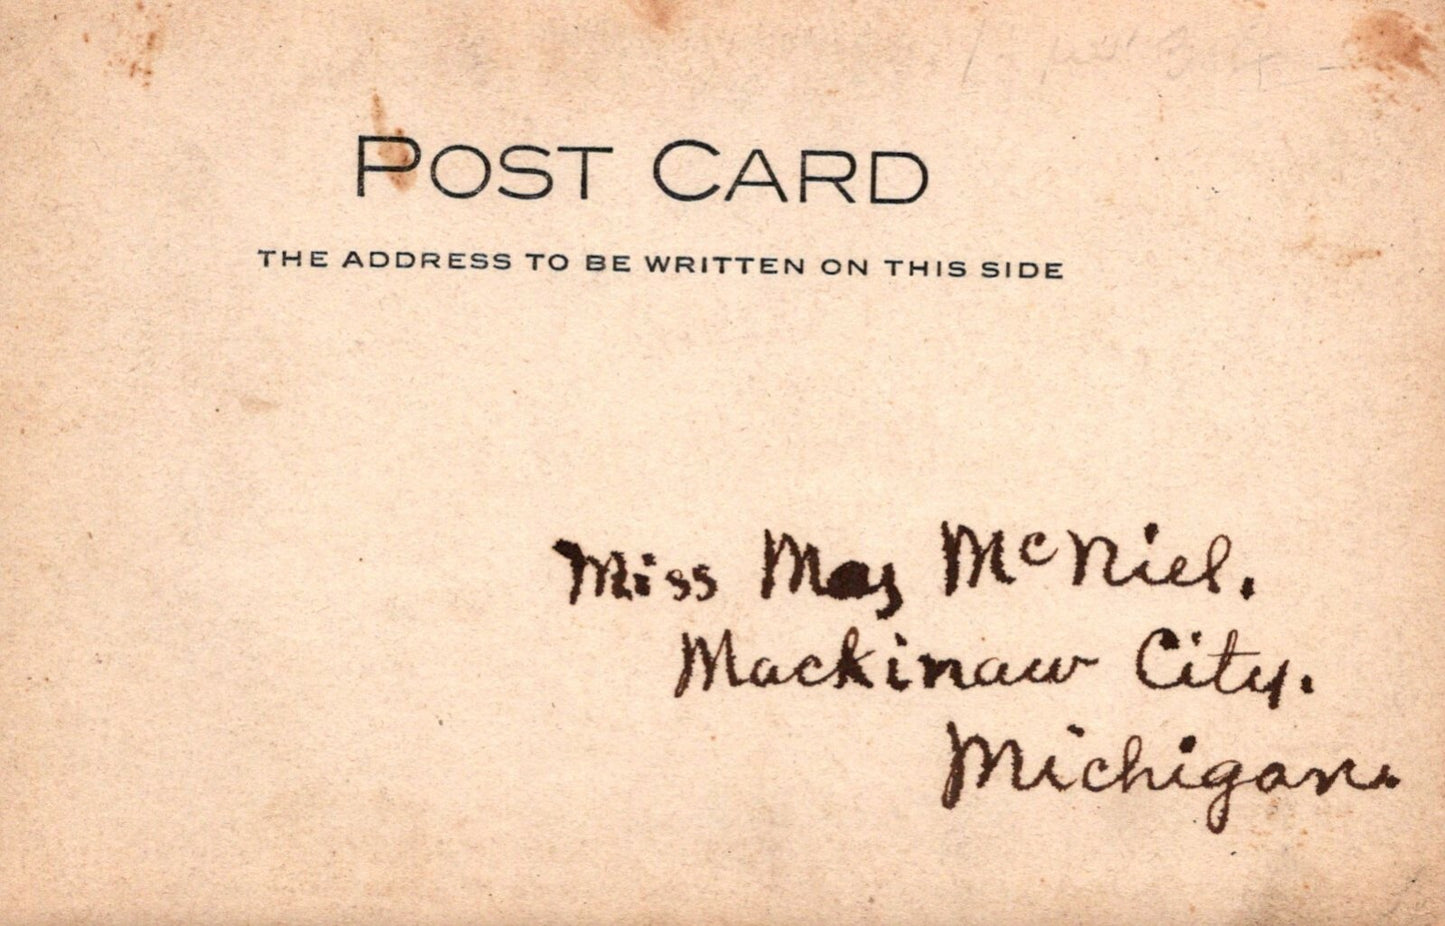 POST CARD
THE ADDRESS TO BE WRITTEN ON THIS SIDE
Miss May McNiel.
Mackinaw City.
Michigan.